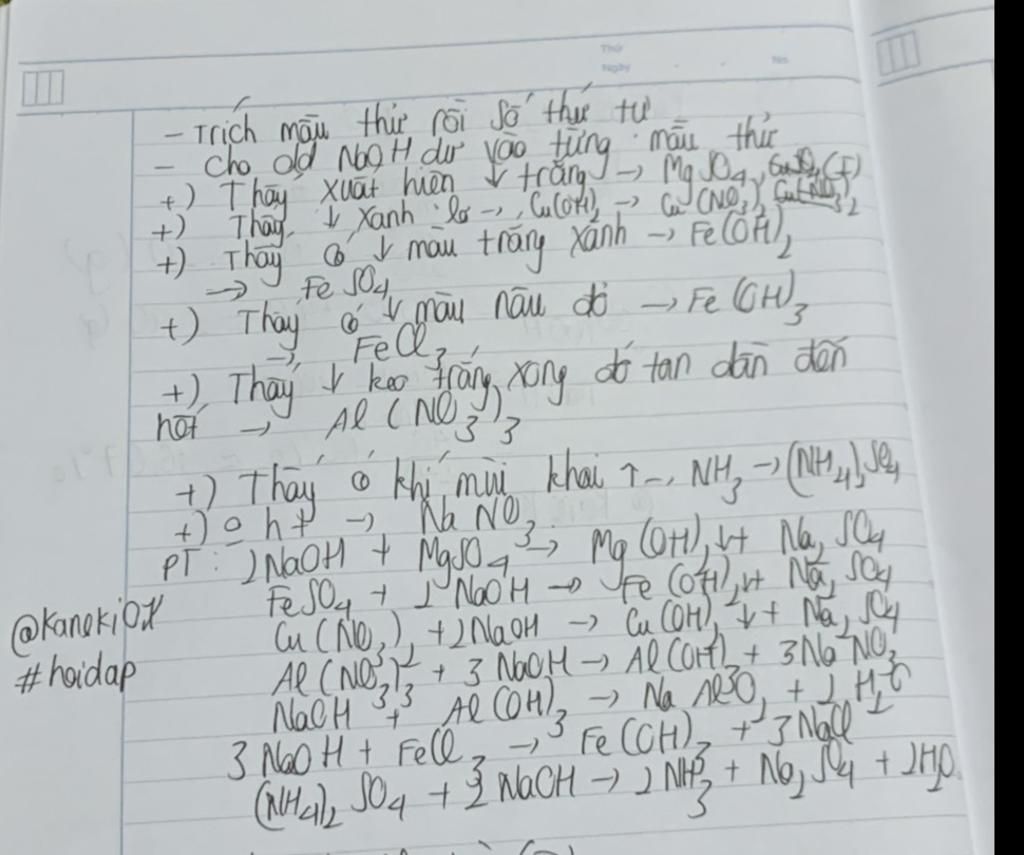 Thứ
Ngày No
- Trích mẫu thử rồi số thứ tự
- Cho dd NaOH dư vào từng mẫu thử
+) Thấy xuất hiện ↓ trắng → MgSO4, (I)
+) Thấy ↓ xanh lơ → Cu(OH)2 → Cu(NO3)2
+) Thấy có ↓ màu trắng xanh → Fe(OH)2
→ FeSO4
+) Thấy có ↓ màu nâu đỏ → Fe(OH)3
→ FeCl3
+) Thấy ↓ keo trắng xong đó tan dần đến
hết → Al(NO3)3
+) Thấy có khí mùi khai ↑ → NH3 → (NH4)2SO4
+) o ht → NaNO3
PT: 2NaOH + MgSO4 → Mg(OH)2↓ + Na2SO4
FeSO4 + 2NaOH → Fe(OH)2↓ + Na2SO4
@Kaneki0
Cu(NO3)2 + 2NaOH → Cu(OH)2↓ + Na2SO4
#hoidap
Al(NO3)3 + 3NaOH → Al(OH)3 + 3NaNO3
NaOH + Al(OH)3 → NaAlO2 + 2H2O
3NaOH + FeCl3 → Fe(OH)3 + 3NaCl
(NH4)2SO4 + 2NaOH → 2NH3 + Na2SO4 + 2H2O